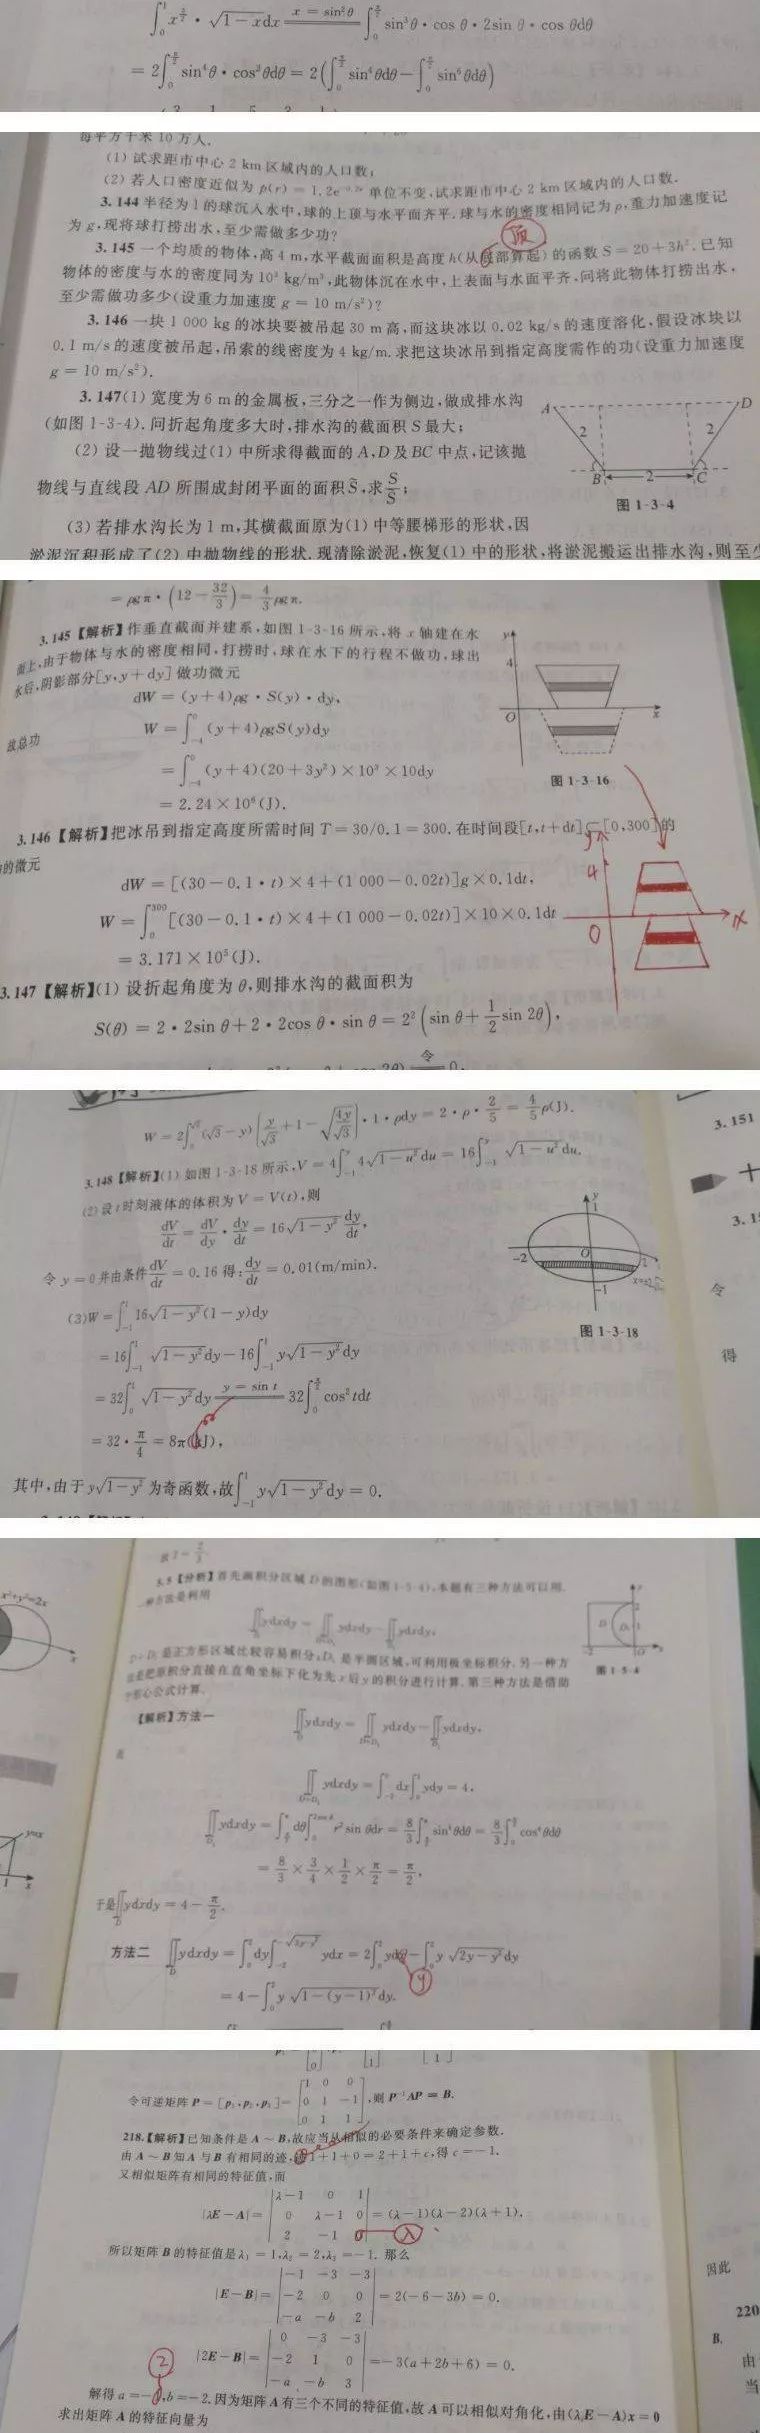 ∫₀¹ x^{3/2} · √(1−x) dx ==(x = sin²θ)== ∫₀^{π/2} sin³θ · cos θ · 2sin θ · cos θdθ
= 2∫₀^{π/2} sin⁴θ · cos²θdθ = 2(∫₀^{π/2} sin⁴θdθ − ∫₀^{π/2} sin⁶θdθ)
每平方千米 10 万人.
(1) 试求距市中心 2 km 区域内的人口数;
(2) 若人口密度近似为 p(r) = 1.2e 单位不变,试求距市中心 2 km 区域内的人口数.
3.144 半径为 1 的球沉入水中,球的上顶与水平面齐平.球与水的密度相同记为 ρ,重力加速度记
为 g,现将球打捞出水,至少需做多少功?
顶
3.145 一个均质的物体,高 4 m,水平截面面积是高度 h(从底部算起)的函数 S = 20 + 3h². 已知
物体的密度与水的密度同为 10³ kg/m³,此物体沉在水中,上表面与水面平齐.问将此物体打捞出水,
至少需做功多少(设重力加速度 g = 10 m/s²)?
3.146 一块 1 000 kg 的冰块要被吊起 30 m 高,而这块冰以 0.02 kg/s 的速度溶化,假设冰块以
0.1 m/s 的速度被吊起,吊索的线密度为 4 kg/m. 求把这块冰吊到指定高度需作的功(设重力加速度
g = 10 m/s²).
3.147 (1) 宽度为 6 m 的金属板,三分之一作为侧边,做成排水沟
(如图 1-3-4). 问折起角度多大时,排水沟的截面积 S 最大;
(2) 设一抛物线过(1) 中所求得截面的 A,D 及 BC 中点,记该抛
物线与直线段 AD 所围成封闭平面的面积 S̄,求 S̄/S;
(3) 若排水沟长为 1 m,其横截面原为(1) 中等腰梯形的形状,因
淤泥沉积形成了(2) 中抛物线的形状. 现清除淤泥,恢复(1) 中的形状,将淤泥搬运出排水沟,则至少
A D
2 2
B 2 C
图 1-3-4
= ρgπ · (12 − 32/3) = 4/3 ρgπ.
3.145【解析】作垂直截面并建系,如图 1-3-16 所示,将 x 轴建在水
面上,由于物体与水的密度相同,打捞时,球在水下的行程不做功,球出
水后,阴影部分[y, y + dy] 做功微元
dW = (y + 4)ρg · S(y) · dy,
故总功
W = ∫₋₄⁰ (y + 4)ρgS(y)dy
= ∫₋₄⁰ (y + 4)(20 + 3y²) × 10³ × 10dy
= 2.24 × 10⁶ (J).
y
4
O x
图 1-3-16
3.146【解析】把冰吊到指定高度所需时间 T = 30/0.1 = 300. 在时间段[t, t + dt]⊂[0,300]的
的微元
dW = [(30 − 0.1 · t) × 4 + (1 000 − 0.02t)]g × 0.1dt,
W = ∫₀³⁰⁰ [(30 − 0.1 · t) × 4 + (1 000 − 0.02t)] × 10 × 0.1dt
= 3.171 × 10⁵ (J).
y
4
0 x
3.147【解析】(1) 设折起角度为 θ,则排水沟的截面积为
S(θ) = 2 · 2sin θ + 2 · 2cos θ · sin θ = 2² (sin θ + 1/2 sin 2θ),
令
W = 2∫₀^{√3} (√3 − y) [y/√3 + 1 − √(4y/√3)] · 1 · ρdy = 2 · ρ · 2/5 = 4/5 ρ(J).
3.148【解析】(1) 如图 1-3-18 所示,V = 4∫₋₁^y 4√(1 − u²)du = 16∫₋₁^y √(1 − u²)du.
(2) 设 t 时刻液体的体积为 V = V(t),则
dV/dt = dV/dy · dy/dt = 16√(1 − y²) dy/dt,
令 y = 0 并由条件 dV/dt = 0.16 得: dy/dt = 0.01(m/min).
(3)W = ∫₋₁¹ 16√(1 − y²)(1 − y)dy
= 16∫₋₁¹ √(1 − y²)dy − 16∫₋₁¹ y√(1 − y²)dy
= 32∫₀¹ √(1 − y²)dy ==(y = sin t)== 32∫₀^{π/2} cos²tdt
= 32 · π/4 = 8π(kJ),
其中,由于 y√(1 − y²) 为奇函数,故∫₋₁¹ y√(1 − y²)dy = 0.
y
1
−2 O 2
−1
图 1-3-18
3.151
十
令
得
x²+y²=2x
x
y=x
1 x
5.5【分析】首先画积分区域 D 的图形(如图 1-5-4),本题有三种方法可以用.
一种方法是利用
∬ydxdy = ∬ydxdy − ∬ydxdy,
D + D₁ 是正方形区域比较容易积分;D₁ 是半圆区域,可利用极坐标积分. 另一种方
法是把原积分直接在直角坐标下化为先 x 后 y 的积分进行计算. 第三种方法是借助
于形心公式计算.
图 1-5-4
【解析】方法一
∬ydxdy = ∬ydxdy − ∬ydxdy,
∬ydxdy = ∫₋₂⁰ dx∫₀² ydy = 4,
∬ydxdy = ∫dθ∫₀^{2sin θ} r² sin θdr = 8/3 ∫sin⁴θdθ = 8/3 ∫₀^{π/2} cos⁴θdθ
= 8/3 × 3/4 × 1/2 × π/2 = π/2,
于是∬ydxdy = 4 − π/2.
方法二 ∬ydxdy = ∫₀² dy∫₋₂^{−√(2y−y²)} ydx = 2∫₀² ydy − ∫₀² y √(2y − y²)dy
y
= 4 − ∫₀² y √(1 − (y − 1)²)dy.
令可逆矩阵 P = [p₁, p₂, p₃] = [1 0 0; 0 1 −1; 0 1 1], 则 P⁻¹AP = B.
218.【解析】已知条件是 A ~ B,故应当从相似的必要条件来确定参数.
由 A ~ B 知 A 与 B 有相同的迹, 1 + 1 + 0 = 2 + 1 + c,得 c = −1.
又相似矩阵有相同的特征值,而
|λE − A| = |λ − 1 0 1; 0 λ − 1 0; 2 −1 0| = (λ − 1)(λ − 2)(λ + 1),
λ
所以矩阵 B 的特征值是 λ₁ = 1,λ₂ = 2,λ₃ = −1. 那么
|E − B| = |−1 −3 −3; −2 0 0; −a −b 2| = 2(−6 − 3b) = 0.
|2E − B| = |0 −3 −3; −2 1 0; −a −b 3| = −3(a + 2b + 6) = 0.
2
解得 a = − ,b = −2. 因为矩阵 A 有三个不同的特征值,故 A 可以相似对角化,由(λᵢE − A)x = 0
求出矩阵 A 的特征向量为
因此
220
B.
由
当